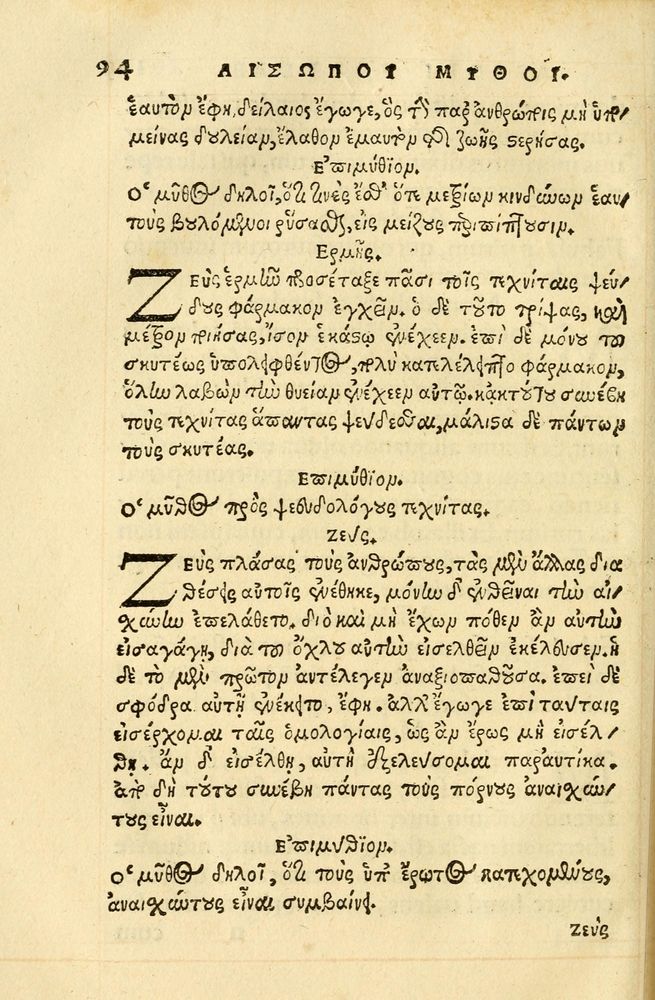 94 ΑΙΣΩΠΟΥ ΜΥΘΟΙ.
ἑαυτὸν ἔφη, δείλαιος ἔγωγε, ὃς τὴν παρ' ἀνθρώποις μὴ ὑπο/
μείνας δουλείαν, ἔλαθον ἐμαυτὸν καὶ ζωῆς στερήσας.
Ἐπιμύθιον.
Ὁ μῦθος δηλοῖ, ὅτι τινὲς ἔσθ' ὅτε μετρίων κινδύνων ἑαυ/
τοὺς βουλόμενοι ῥύσασθαι, εἰς μείζους περιπίπτουσιν.
Ερμῆς.
ΖΕὺς ἑρμῇ προσέταξε πᾶσι τοῖς τεχνίταις ψεύ/
δους φάρμακον ἐγχέαι. ὁ δὲ τοῦτο τρίψας, καὶ
μέτρον ποιήσας, ἴσον ἑκάστῳ ἐνέχεεν. ἐπεὶ δὲ μόνου τοῦ
σκυτέως ὑπολειφθέντος, πολὺ κατελέλειπτο φάρμακον,
ὅλην λαβὼν τὴν θυείαν ἐνέχεεν αὐτῷ. κἀκ τούτου συνέβη
τοὺς τεχνίτας ἅπαντας ψεύδεσθαι, μάλιστα δὲ πάντων
τοὺς σκυτέας.
Ἐπιμύθιον.
Ὁ μῦθος πρὸς ψευδολόγους τεχνίτας.
Ζεύς.
ΖΕὺς πλάσας τοὺς ἀνθρώπους, τὰς μὲν ἄλλας δια
θέσεις αὐτοῖς ἐνέθηκε, μόνην δ' ἐνθεῖναι τὴν αἰ/
χύνην ἐπελάθετο. διὸ καὶ μὴ ἔχων πόθεν ἂν αὐτὴν
εἰσαγάγῃ, διὰ τοῦ ὄχλου αὐτὴν εἰσελθεῖν ἐκέλευσεν. ἡ
δὲ τὸ μὲν πρῶτον ἀντέλεγεν ἀναξιοπαθοῦσα. ἐπεὶ δὲ
σφόδρα αὐτῇ ἐνέκειτο, ἔφη. ἀλλ' ἔγωγε ἐπὶ ταύταις
εἰσέρχομαι ταῖς ὁμολογίαις, ὡς ἂν ἔρως μὴ εἰσέλ/
θῃ. ἂν δ' εἰσέλθῃ, αὐτὴ ἐξελεύσομαι παραυτίκα.
ἀπὸ δὴ τούτου συνέβη πάντας τοὺς πόρνους ἀναισχύν/
τους εἶναι.
Ἐπιμύθιον.
Ὁ μῦθος δηλοῖ, ὅτι τοὺς ὑπ' ἔρωτος κατεχομένους,
ἀναισχύντους εἶναι συμβαίνει.
Ζεὺς